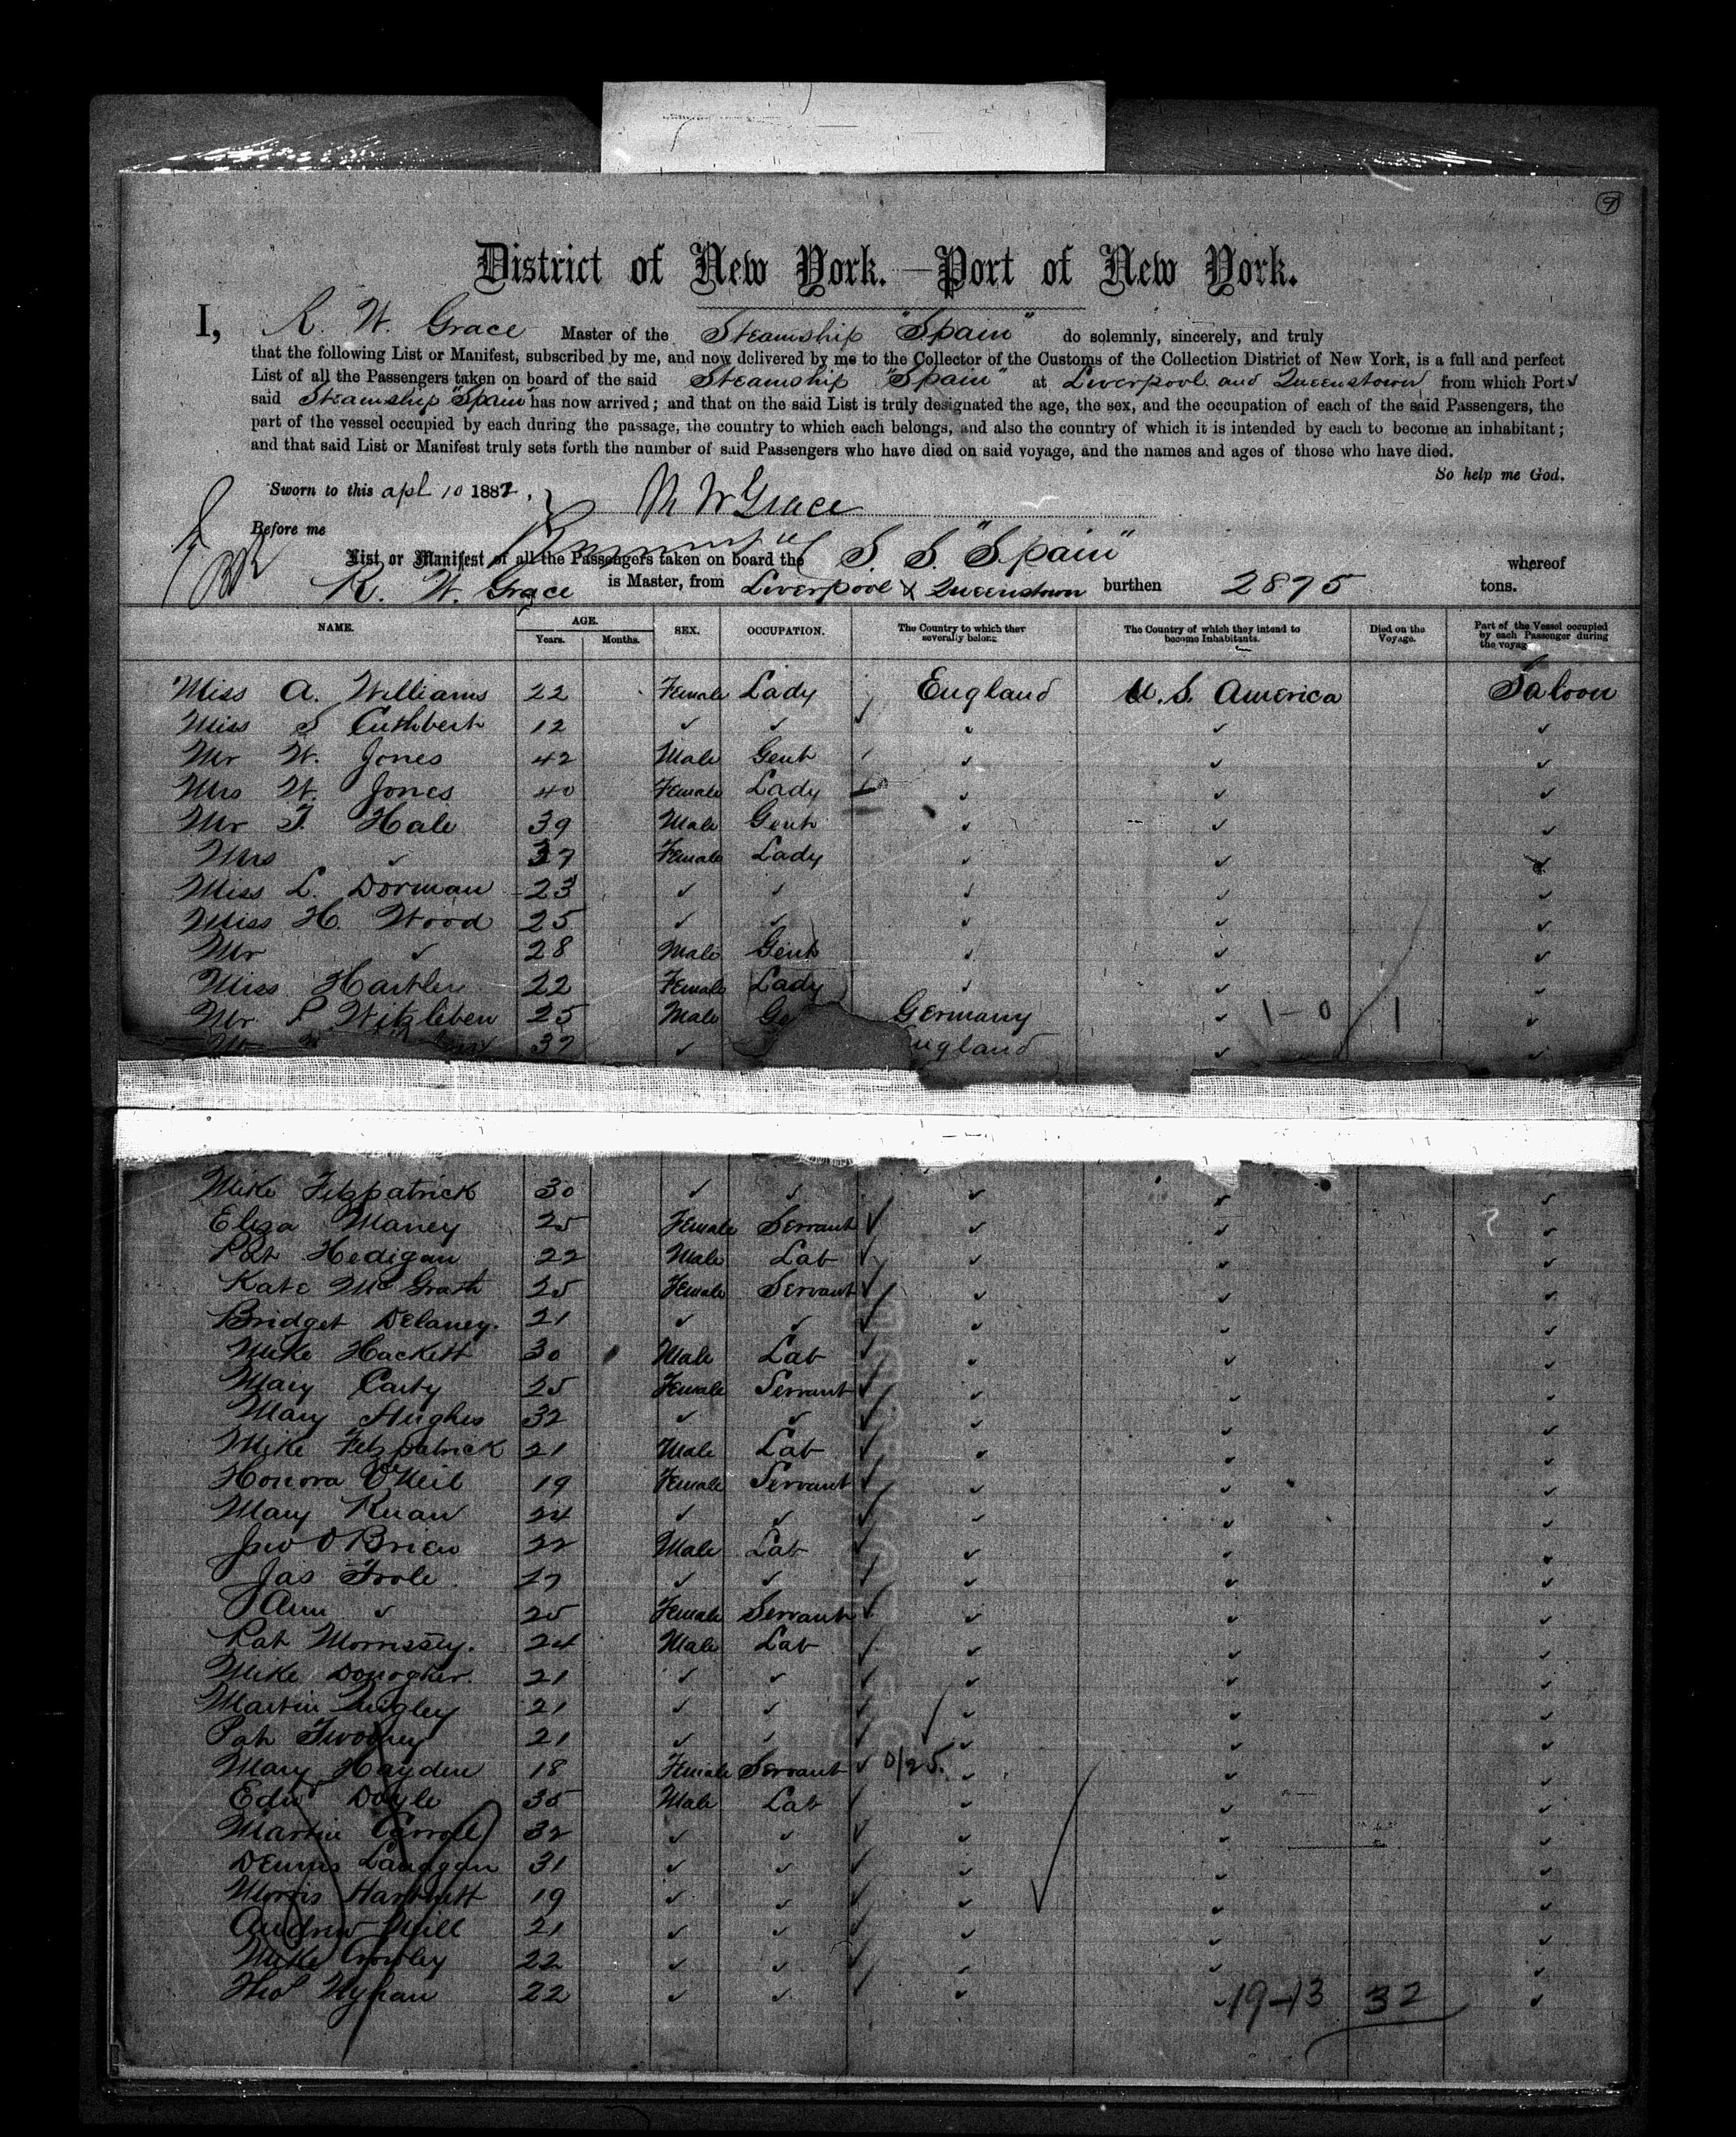 9
District of New York.—Port of New York.
I, R. W. Grace Master of the Steamship "Spain" do solemnly, sincerely, and truly
that the following List or Manifest, subscribed by me, and now delivered by me to the Collector of the Customs of the Collection District of New York, is a full and perfect
List of all the Passengers taken on board of the said Steamship "Spain" at Liverpool and Queenstown from which Port
said Steamship "Spain" has now arrived; and that on the said List is truly designated the age, the sex, and the occupation of each of the said Passengers, the
part of the vessel occupied by each during the passage, the country to which each belongs, and also the country of which it is intended by each to become an inhabitant;
and that said List or Manifest truly sets forth the number of said Passengers who have died on said voyage, and the names and ages of those who have died.
So help me God.
Sworn to this apl 10 1882, R W Grace
Before me
List or Manifest of all the Passengers taken on board the S. S. "Spain" whereof
R. W. Grace is Master, from Liverpool & Queenstown burthen 2875 tons.
NAME. AGE. Years. Months. SEX. OCCUPATION. The Country to which they severally belong. The Country of which they intend to become Inhabitants. Died on the Voyage. Part of the Vessel occupied by each Passenger during the voyage
Miss A. Williams 22 Female Lady England U. S. America Saloon
Miss S Cuthbert 12 ✓ ✓ ✓ ✓ ✓
Mr W. Jones 42 Male Gent ✓ ✓ ✓
Mrs W. Jones 40 Female Lady ✓ ✓ ✓
Mr T. Hale 39 Male Gent ✓ ✓ ✓
Mrs ✓ 37 Female Lady ✓ ✓ ✓
Miss L. Dorman 23 ✓ ✓ ✓ ✓ ✓
Miss H. Wood 25 ✓ ✓ ✓ ✓ ✓
Mr ✓ 28 Male Gent ✓ ✓ ✓
Miss Hartley 22 Female Lady ✓ ✓ ✓
Mr P Witzleben 25 Male Ge Germany ✓ 1-0/1 ✓
37 ✓ ngland ✓ ✓
Mike Fitzpatrick 30 ✓ ✓ ✓ ✓ ✓
Eliza Maney 25 Female Servant ✓ ✓ ✓ ✓
Pat Hedigan 22 Male Lab ✓ ✓ ✓ ✓
Kate McGrath 25 Female Servant ✓ ✓ ✓ ✓
Bridget Delaney. 21 ✓ ✓ ✓ ✓ ✓ ✓
Mike Hackett 30 Male Lab ✓ ✓ ✓ ✓
Mary Carty 25 Female Servant ✓ ✓ ✓ ✓
Mary Hughes 32 ✓ ✓ ✓ ✓ ✓ ✓
Mike Fitzpatrick 21 Male Lab ✓ ✓ ✓ ✓
Honora O'Neil 19 Female Servant ✓ ✓ ✓ ✓
Mary Ruan 24 ✓ ✓ ✓ ✓ ✓ ✓
Jno O'Brien 22 Male Lab ✓ ✓ ✓ ✓
Jas 27 ✓ ✓ ✓ ✓ ✓ ✓
Ann ✓ 25 Female Servant ✓ ✓ ✓ ✓
Pat Morrissey. 24 Male Lab ✓ ✓ ✓ ✓
Mike Donogher. 21 ✓ ✓ ✓ ✓ ✓ ✓
Martin Quigley 21 ✓ ✓ ✓ ✓ ✓ ✓
Pat Twoomey 21 ✓ ✓ ✓ ✓ ✓ ✓
Mary Hayden 18 Female Servant ✓ 0/25. ✓ ✓ ✓
Edwd Doyle 35 Male Lab ✓ ✓ ✓ ✓
Martin Carroll 32 ✓ ✓ ✓ ✓ ✓ ✓
Dennis Lanaggan 31 ✓ ✓ ✓ ✓ ✓ ✓
Morris Hartnett 19 ✓ ✓ ✓ ✓ ✓ ✓
Andrew Neill 21 ✓ ✓ ✓ ✓ ✓ ✓
Mike Crowley 22 ✓ ✓ ✓ ✓ ✓ ✓
Thos Nyhan 22 ✓ ✓ ✓ ✓ ✓ 19-13 32 ✓